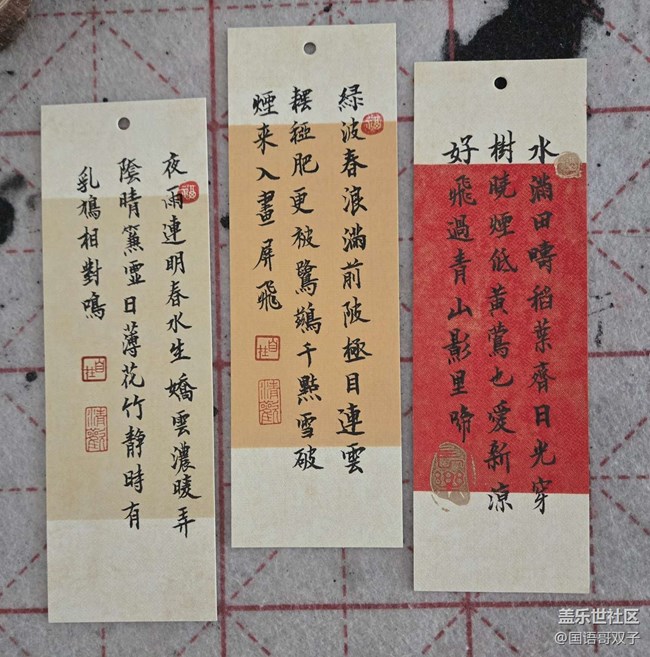 夜雨連明春水生嬌雲濃暖弄
陰晴簾虛日薄花竹靜時有
乳鳩相對鳴
自在
清歡
綠波春浪滿前陂極目連雲
䆉稏肥更被鷺鶿千點雪破
煙来入畫屏飛
自在
清歡
水滿田疇稻葉齊日光穿
樹曉煙低黃鶯也愛新涼
好飛過青山影里啼
盖乐世社区
@国语哥双子